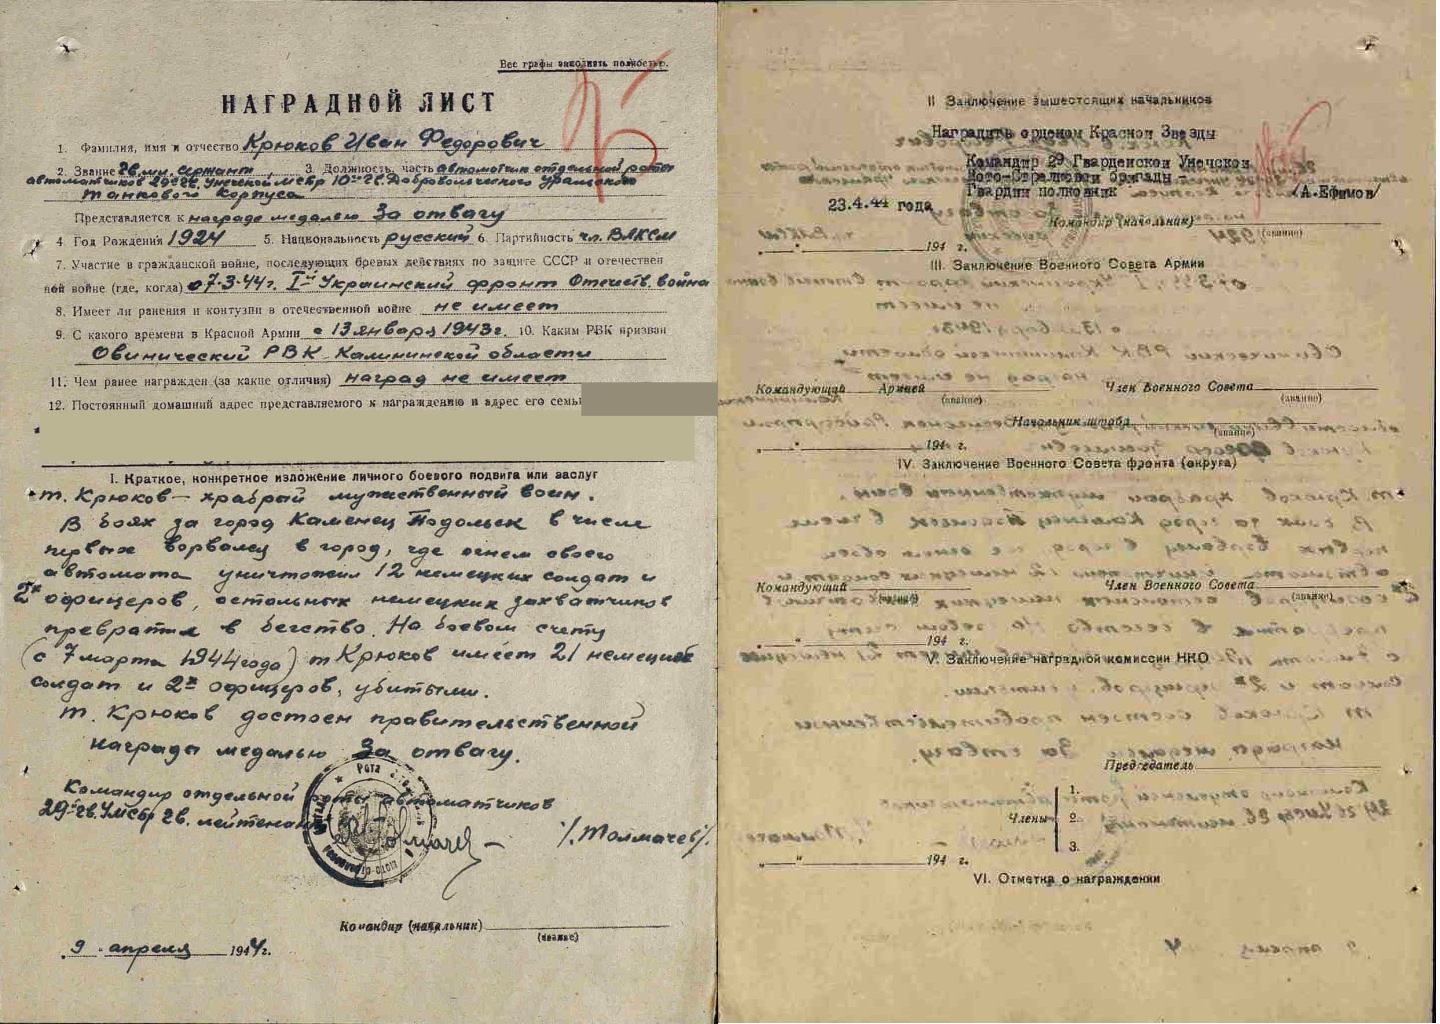 Все графы заполнять полностью.
НАГРАДНОЙ ЛИСТ
1. Фамилия, имя и отчество Крюков Иван Федорович
2. Звание Гв. мл. сержант 3. Должность, часть автоматчик отдельной роты
автоматчиков 29 гв. Унечской Мсбр 10 гв. Добровольческого Уральского
танкового корпуса
Представляется к награде медалью За отвагу
4. Год Рождения 1924 5. Национальность русский 6. Партийность чл. ВЛКСМ
7. Участие в гражданской войне, последующих боевых действиях по защите СССР и отечествен
ной войне (где, когда) с 7.3.44 г. 1й Украинский фронт Отечеств. война
8. Имеет ли ранения и контузии в отечественной войне не имеет
9. С какого времени в Красной Армии с 13 января 1943 г. 10. Каким РВК призван
Овинический РВК Калининской области
11. Чем ранее награжден (за какие отличия) наград не имеет
12. Постоянный домашний адрес представляемого к награждению и адрес его семьи
I. Краткое, конкретное изложение личного боевого подвига или заслуг
т. Крюков — храбрый мужественный воин.
В боях за город Каменец Подольск в числе
первых ворвался в город, где огнем своего
автомата уничтожил 12 немецких солдат и
2х офицеров, остальных немецких захватчиков
превратил в бегство. На боевом счету
(с 7 марта 1944 года) т Крюков имеет 21 немецких
солдат и 2х офицеров, убитыми.
Т. Крюков достоен правительственной
награды медалью За отвагу.
Командир отдельной роты автоматчиков
29 гв. Умсбр Гв. лейтенант /Толмачев/.
Командир (начальник)
(звание)
9 апреля 1944 г.
II Заключение вышестоящих начальников
Наградить орденом Красной Звезды
Командир 29 Гвардейской Унечской
Мото-Стрелковой бригады -
Гвардии полковник /А.Ефимов/
23.4.44 года
Командир (начальник)
(звание)
„ “ 194 г.
III. Заключение Военного Совета Армии
Командующий Армией Член Военного Совета
(звание) (звание)
Начальник штаба
(звание)
„ “ 194 г.
IV. Заключение Военного Совета фронта (округа)
Командующий Член Военного Совета
(звание) (звание)
„ “ 194 г.
V. Заключение наградной комиссии НКО
Председатель
1.
Члены 2.
3.
„ “ 194 г.
VI. Отметка о награждении